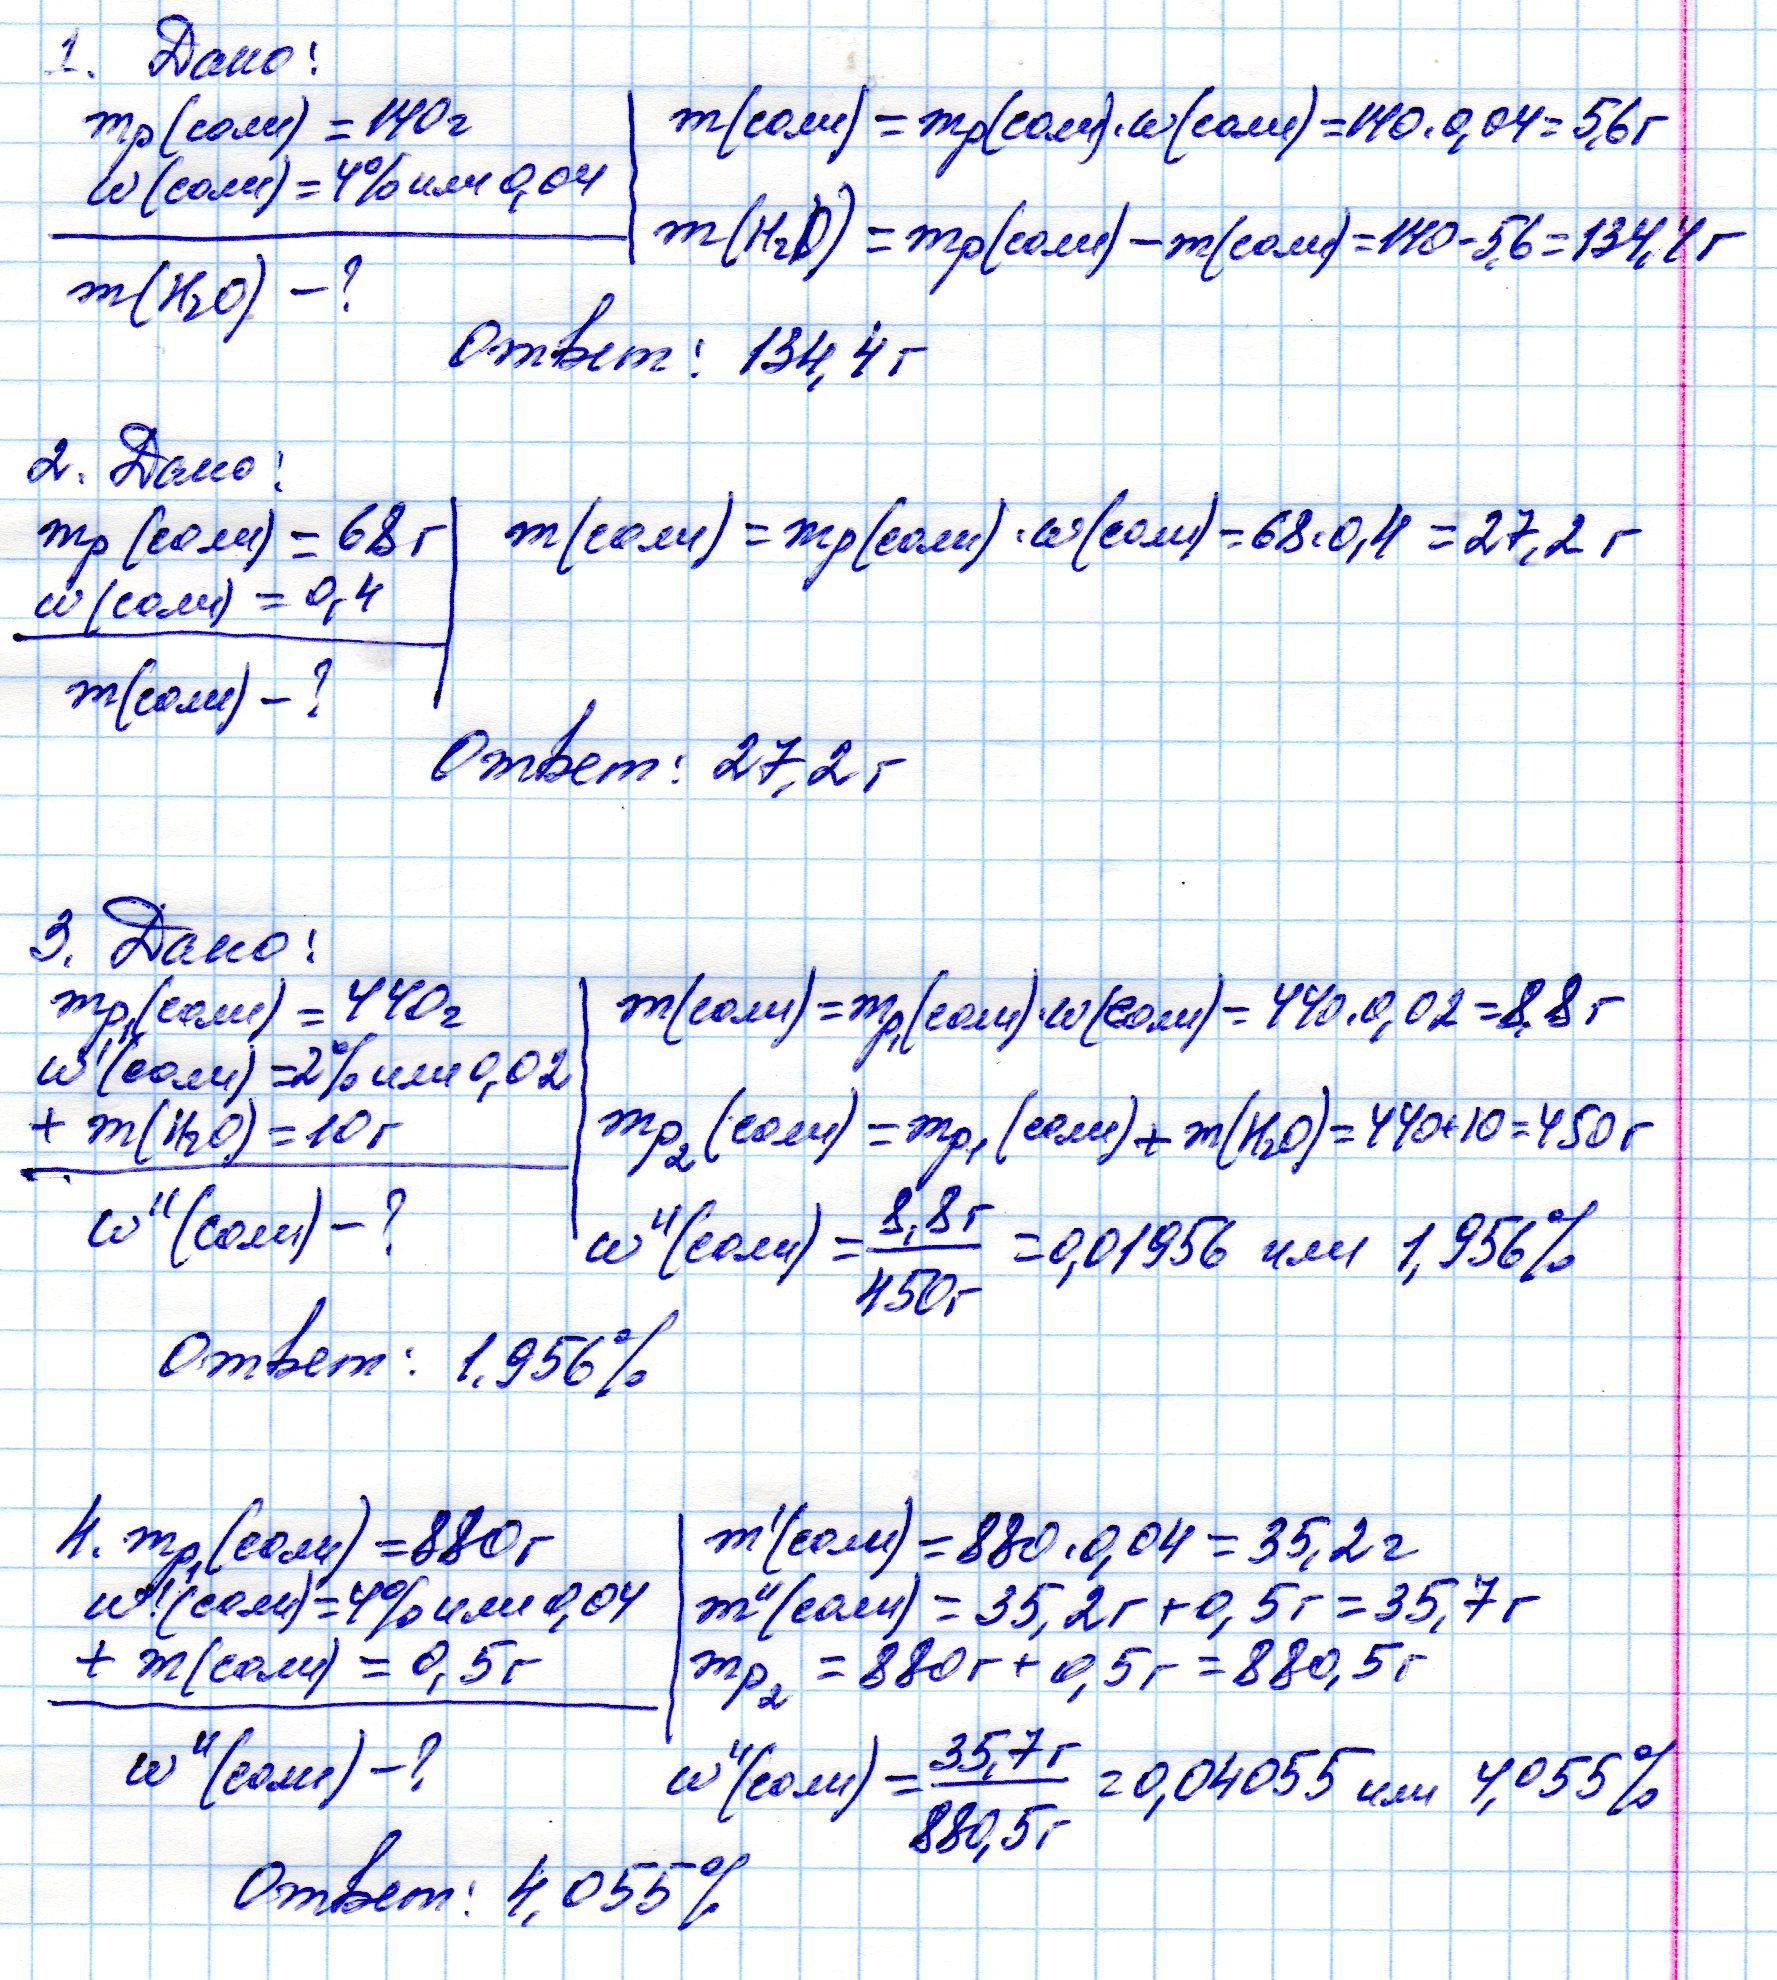 1. Дано:
mр(соли) = 140г
w(соли) = 4% или 0,04
m(H₂O) – ?
m(соли) = mр(соли)·w(соли) = 140·0,04 = 5,6г
m(H₂O) = mр(соли) – m(соли) = 140-5,6 = 134,4г
Ответ: 134,4г
2. Дано:
mр(соли) = 68г
w(соли) = 0,4
m(соли) – ?
m(соли) = mр(соли)·w(соли) = 68·0,4 = 27,2г
Ответ: 27,2г
3. Дано:
mр₁(соли) = 440г
w'(соли) = 2% или 0,02
+ m(H₂O) = 10г
w"(соли) – ?
m(соли) = mр₁(соли)·w(соли) = 440·0,02 = 8,8г
mр₂(соли) = mр₁(соли) + m(H₂O) = 440+10 = 450г
w"(соли) = 8,8г/450г = 0,01956 или 1,956%
Ответ: 1,956%
4. mр₁(соли) = 880г
w'(соли) = 4% или 0,04
+ m(соли) = 0,5г
w"(соли) – ?
m'(соли) = 880·0,04 = 35,2г
m"(соли) = 35,2г + 0,5г = 35,7г
mр₂ = 880г + 0,5г = 880,5г
w"(соли) = 35,7г/880,5г = 0,04055 или 4,055%
Ответ: 4,055%